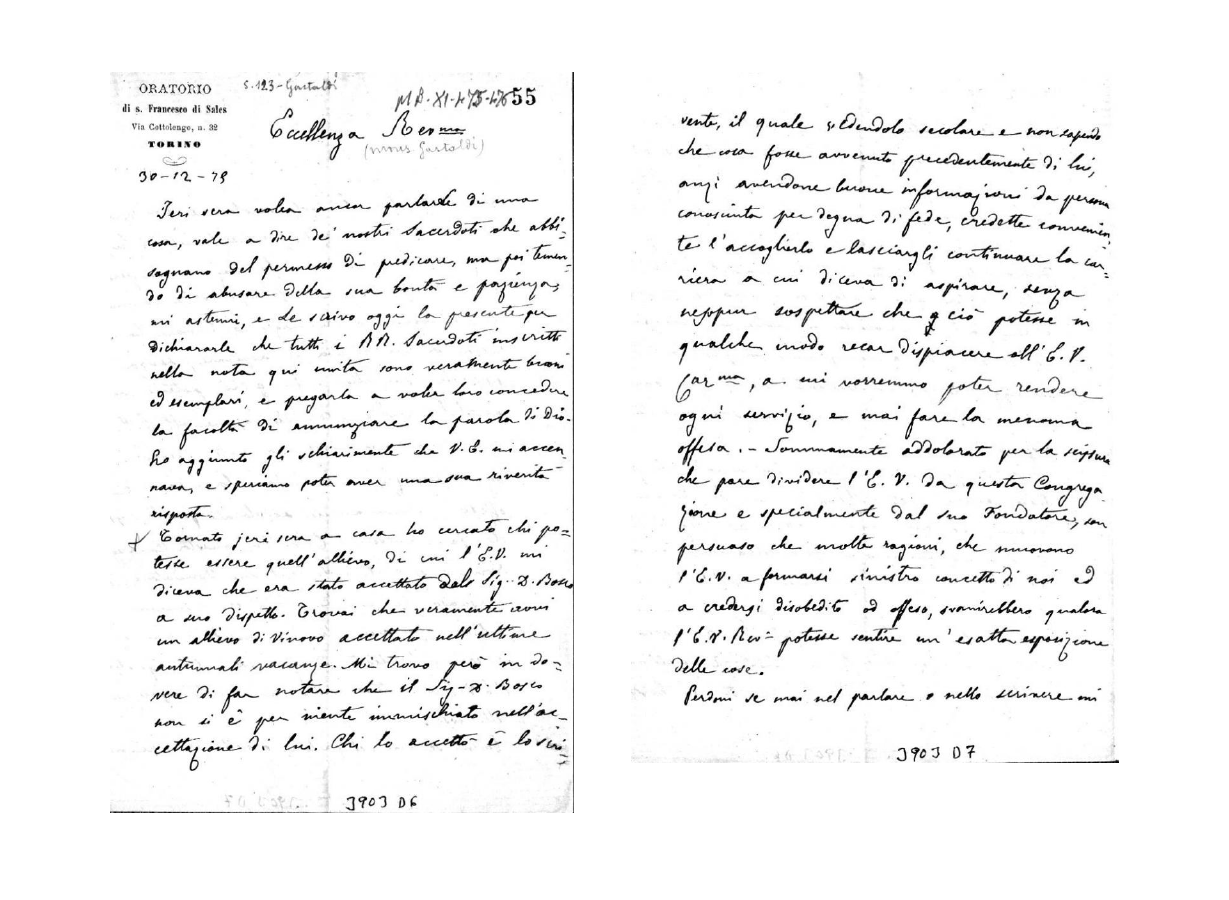 ORATORIO
di s. Francesco di Sales
Via Cottolengo, n. 32
TORINO
30-12-75
S.123-Gastaldi
MB-XI-475-476 55
Eccellenza Rev ma
(mons Gastaldi)
Jeri sera volea ancor parlarle di una
cosa, vale a dire de' nostri Sacerdoti che abbi-
sognano del permesso di predicare, ma poi temen-
do di abusare della sua bontà e pazienza,
mi astenni, e Le scrivo oggi la presente per
dichiararle che tutti i RR. Sacerdoti inscritti
nella nota qui unita sono veramente buoni
ed esemplari, e pregarla a voler loro concedere
la facoltà di annunziare la parola di Dio.
Ho aggiunto gli schiarimente che V. E. mi accen
nava, e speriamo poter aver una sua riverita
risposta.
Tornato jeri sera a casa ho cercato chi po=
tesse essere quell'allievo, di cui l'E.V. mi
diceva che era stato accettato dal Sig. D. Bosco
a suo dispetto. Trovai che veramente avvi
un allievo di Vinovo accettato nell'ultime
autunnali vacanze. Mi trovo però in do=
vere di far notare che il Sig. D. Bosco
non si è per niente immischiato nell'ac-
cettazione di lui. Chi lo accettò è lo scri=
3903 D6
vente, il quale vedendolo secolare e non sapendo
che cosa fosse avvenuto precedentemente di lui,
anzi avendone buone informazioni da persona
conosciuta per degna di fede, credette convenien
te l'accoglierlo e lasciargli continuare la car=
riera a cui diceva di aspirare, senza
neppur sospettare che ciò potesse in
qualche modo recar dispiacere all'E. V.
Car ma, a cui vorremmo poter rendere
ogni servizio, e mai fare la menoma
offesa. - Sommamente addolorato per la scissura
che pare dividere l'E. V. da questa Congrega
zione e specialmente dal suo Fondatore, son
persuaso che molte ragioni, che muovono
l'E.V. a formarsi sinistro concetto di noi ed
a credersi disobedito od offeso, svanirebbero qualora
l'E.V. Rev= potesse sentire un'esatta esposizione
delle cose.
Perdoni se mai nel parlare o nello scrivere mi
3903 D7